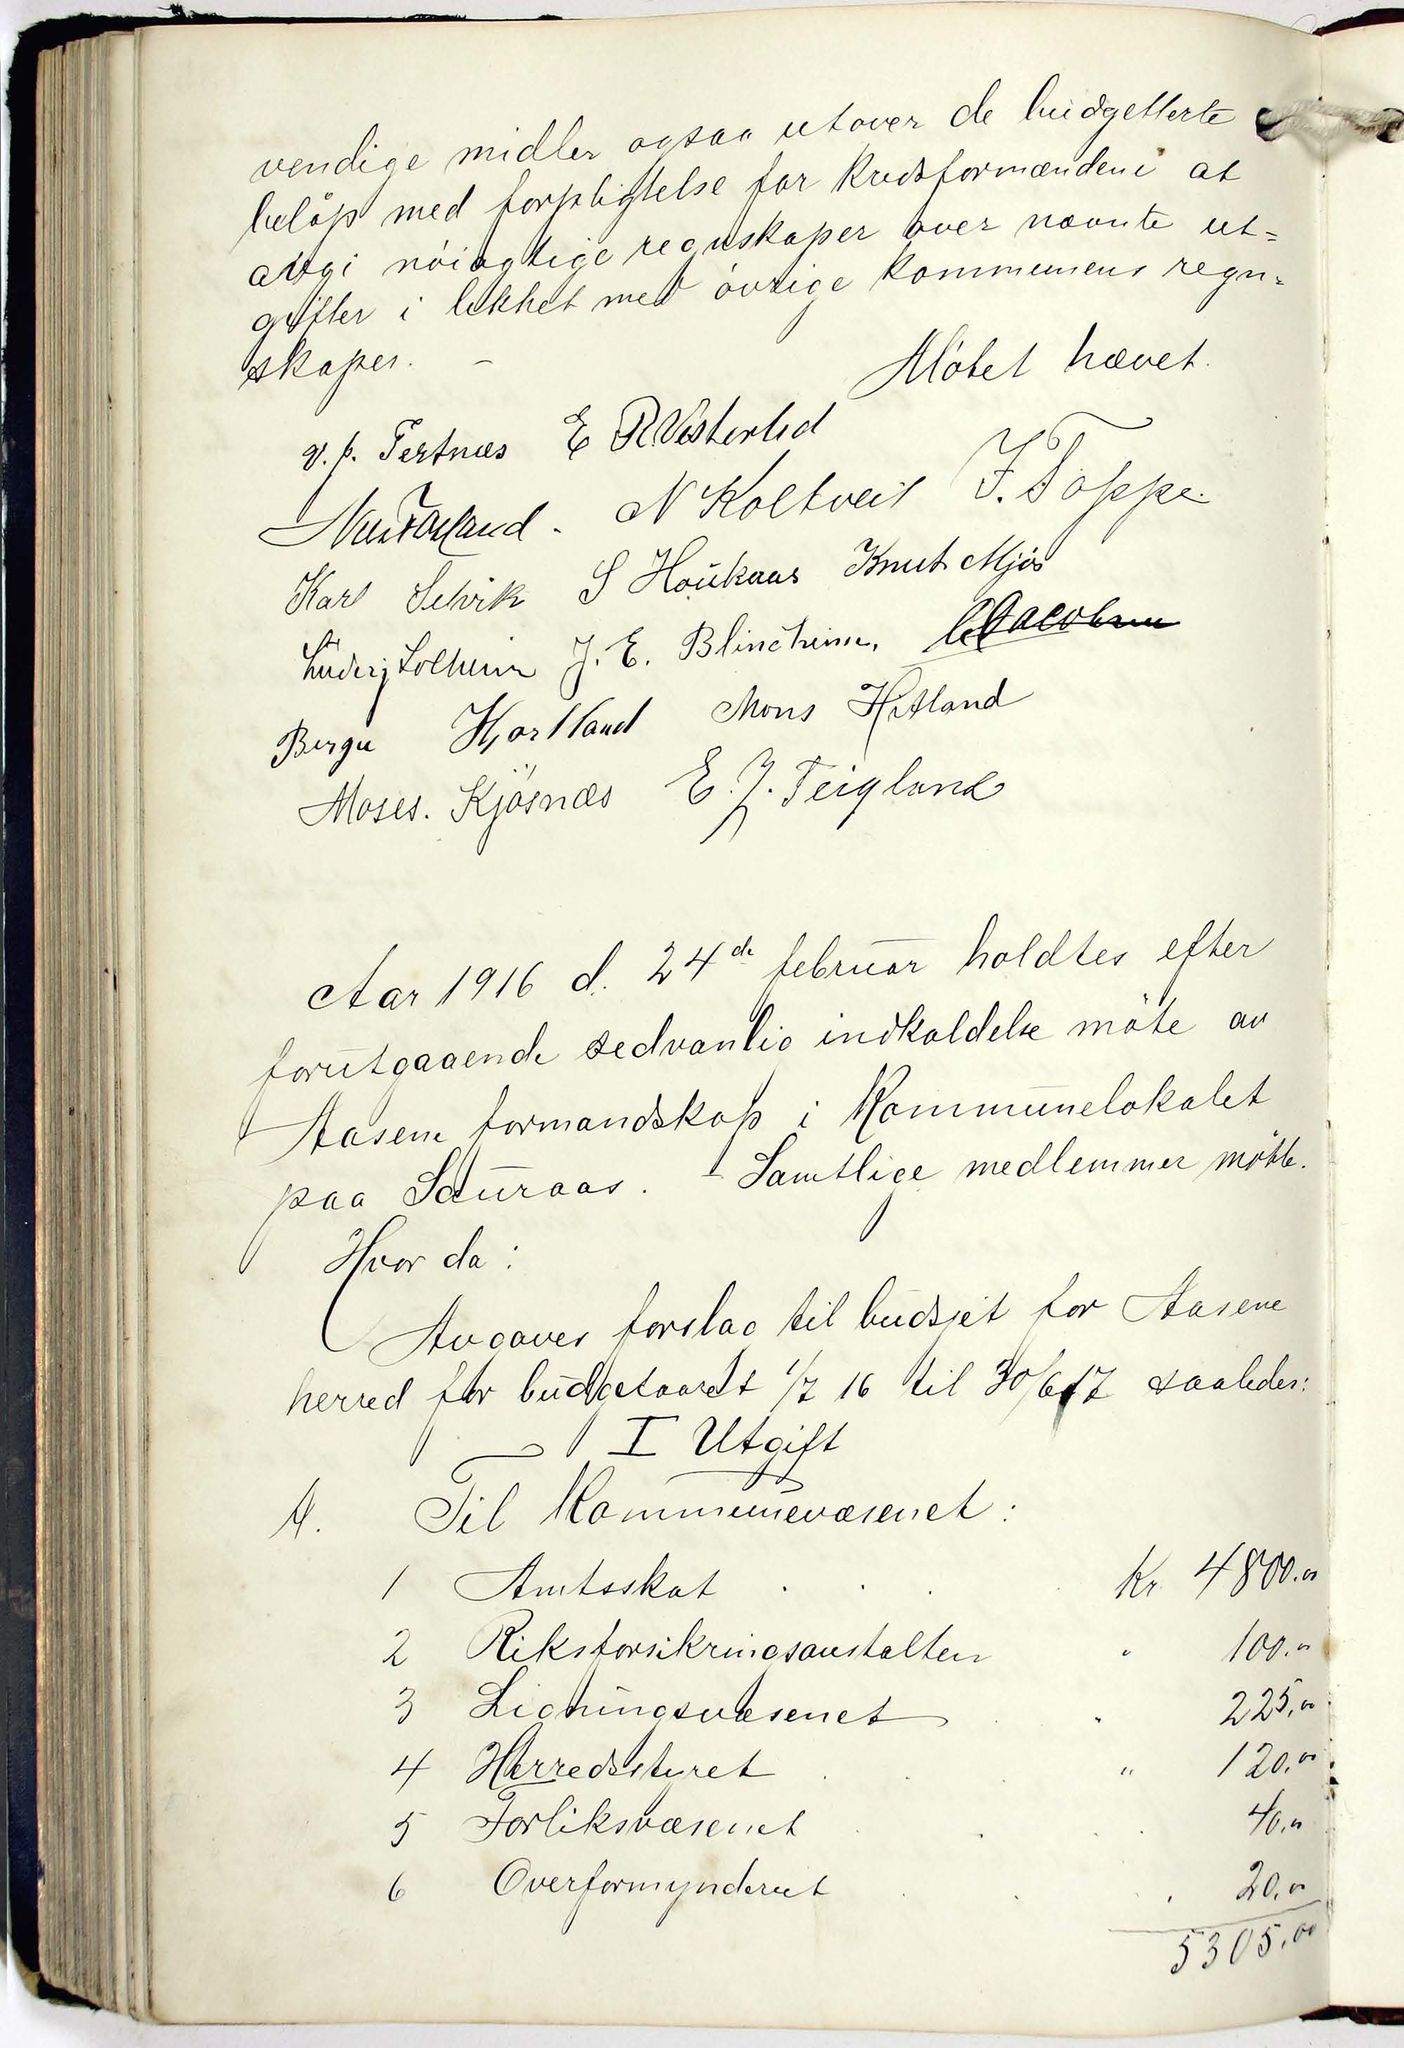 vendige midler ogsaa utover de budgetterte
beløp med forpligtelse for kredsformændene at
avgi nøiagtige regnskaper over nævnte ut=
gifter i likhet med øvrige kommunens regn=
skaper. – Møtet hævet.
V. p. Tertnæs E R. Vesterlid
Nils Forland. N Koltveit J. Toppe.
Karl Selvik S Houkaas Knut Mjøs
Ludvig Solheim J. E. Blindheim. C Jacobsen
Berge Hjortland Mons Hitland
Moses. Kjøsnæs E. J. Teigland
Aar 1916 d. 24de februar holdtes efter
forutgaaende sedvanlig indkaldelse møte av
Aasene formandskap i Kommunelokalet
paa Sauraas. – Samtlige medlemmer møtte.
Hvor da:
Avgaves forslag til budsjet for Aasene
herred for budgetaaret 1/7 16 til 30/6 17 saaledes:
I Utgift
A. Til Kommunevæsenet:
1 Amtsskat . . . Kr. 4800.00
2 Riksforsikringsanstalten " 100.00
3 Ligningsvæsenet " 225.00
4 Herredsstyret . . . " 120.00
5 Forliksvæsenet . . . . 40.00
6 Overformynderiet . . . 20.00
5305.00